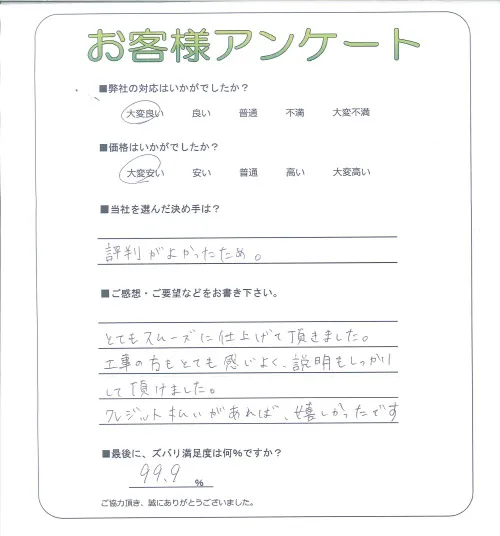 お客様アンケート
■弊社の対応はいかがでしたか？
大変良い 良い 普通 不満 大変不満
■価格はいかがでしたか？
大変安い 安い 普通 高い 大変高い
■当社を選んだ決め手は？
評判がよかったため。
■ご感想・ご要望などをお書き下さい。
とてもスムーズに仕上げて頂きました。
工事の方もとても感じよく、説明もしっかり
して頂けました。
クレジット払いがあれば、嬉しかったです
■最後に、ズバリ満足度は何%ですか？
99.9 %
ご協力頂き、誠にありがとうございました。